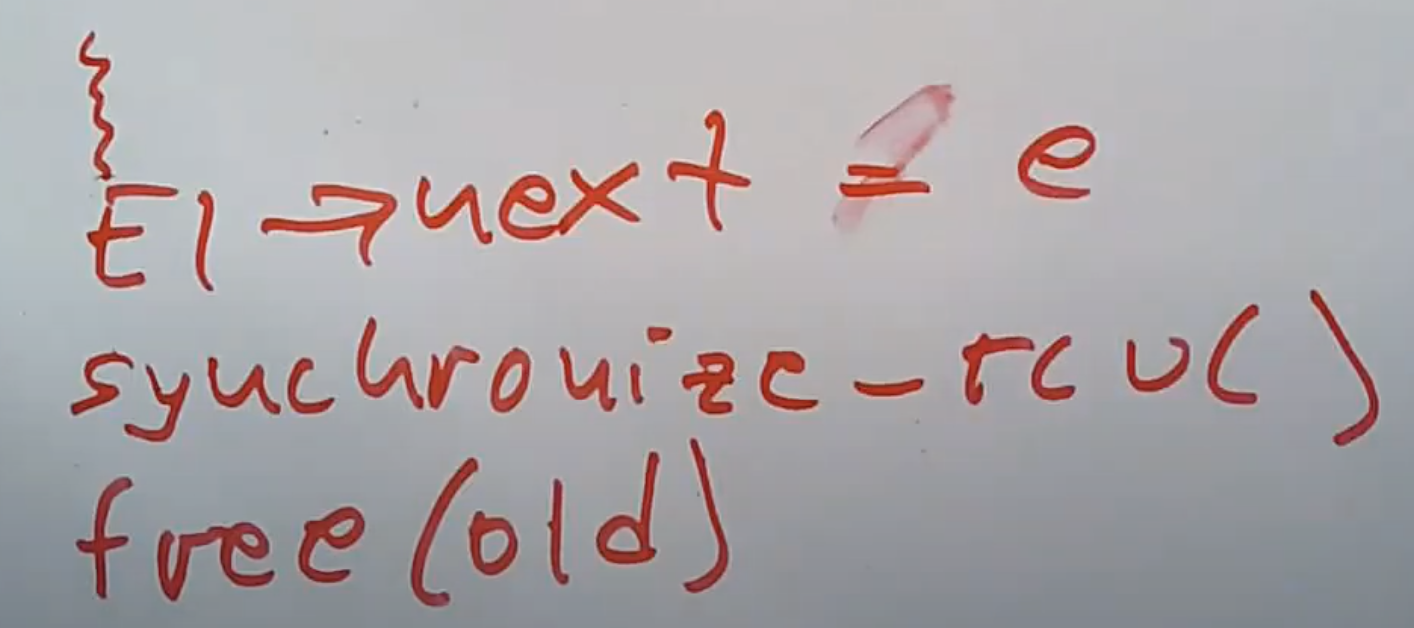 E1 → next = e
synchronize_rcu()
free(old)